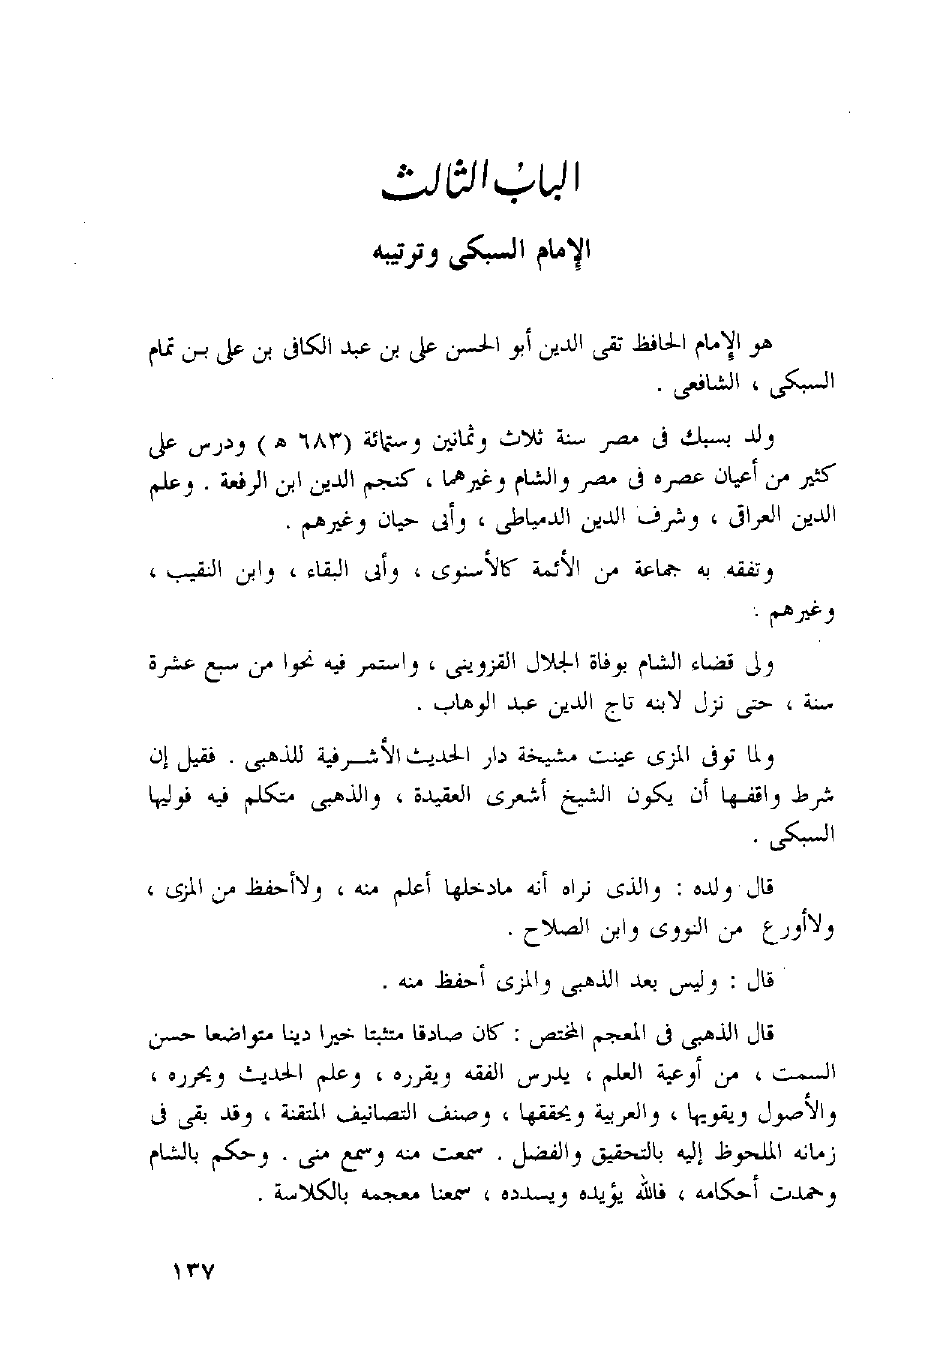 الباب الثالث
الإمام السبكى وترتيبه
هو الإمام الحافظ تقى الدين أبو الحسن على بن عبد الكافى بن على بن تمام
السبكى ، الشافعى .
ولد بسبك فى مصر سنة ثلاث وثمانين وستمائة (٦٨٣ هـ) ودرس على
كثير من أعيان عصره فى مصر والشام وغيرهما ، كنجم الدين ابن الرفعة . وعلم
الدين العراقى ، وشرف الدين الدمياطى ، وأبى حيان وغيرهم .
وتفقه به جماعة من الأئمة كالأسنوى ، وأبى البقاء ، وابن النقيب ،
وغيرهم .
ولى قضاء الشام بوفاة الجلال القزوينى ، واستمر فيه نحوا من سبع عشرة
سنة ، حتى نزل لابنه تاج الدين عبد الوهاب .
ولما توفى المزى عينت مشيخة دار الحديث الأشرفية للذهبى . فقيل إن
شرط واقفها أن يكون الشيخ أشعرى العقيدة ، والذهبى متكلم فيه فوليها
السبكى .
قال ولده : والذى نراه أنه مادخلها أعلم منه ، ولاأحفظ من المزى ،
ولاأورع من النووى وابن الصلاح .
قال : وليس بعد الذهبى والمزى أحفظ منه .
قال الذهبى فى المعجم المختص : كان صادقا متثبتا خيرا دينا متواضعا حسن
السمت ، من أوعية العلم ، يدرس الفقه ويقرره ، وعلم الحديث ويحرره ،
والأصول ويقويها ، والعربية ويحققها ، وصنف التصانيف المتقنة ، وقد بقى فى
زمانه الملحوظ إليه بالتحقيق والفضل . سمعت منه وسمع منى . وحكم بالشام
وحمدت أحكامه ، فالله يؤيده ويسدده ، سمعنا معجمه بالكلاسة .
١٣٧